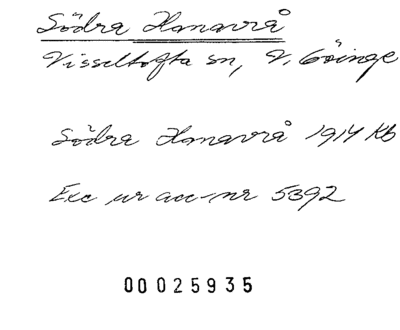 Södra Hanavrå
Visseltofta sn, V. Göinge
Södra Hanavrå 1914 Kb
Exc ur acc-nr 5392
00025935